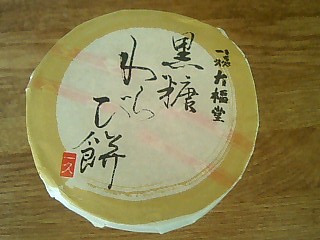 大福堂
黒糖
わら
び餅
一久